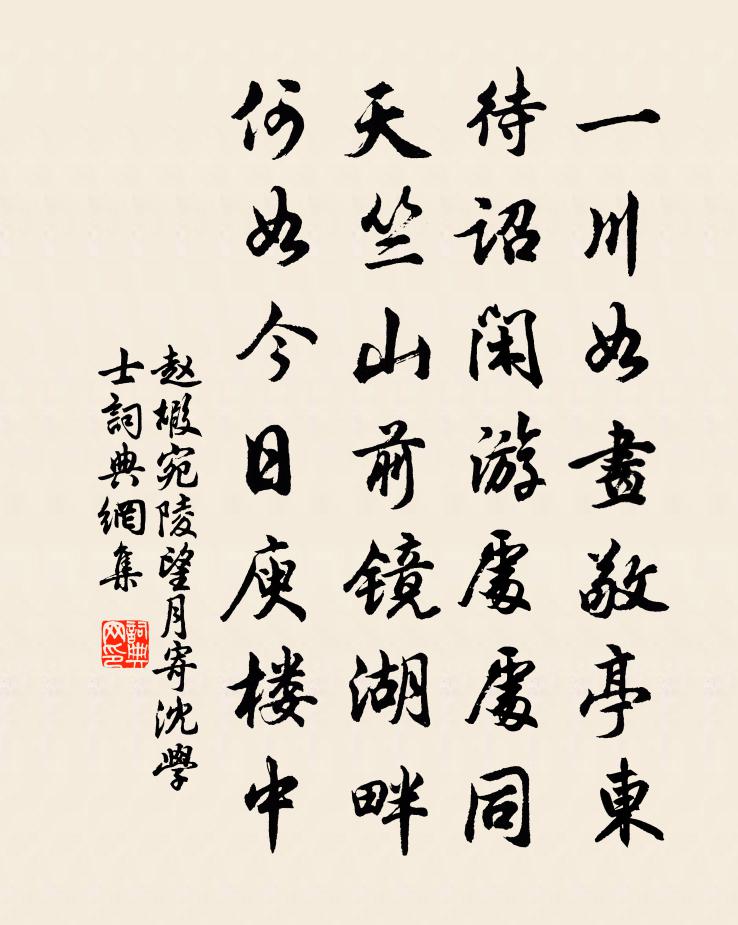 一川如畫敬亭東
待詔閑游處處同
天竺山前镜湖畔
何如今日庾楼中
赵嘏宛陵望月寄沈學
士詞典網集
詞典网印